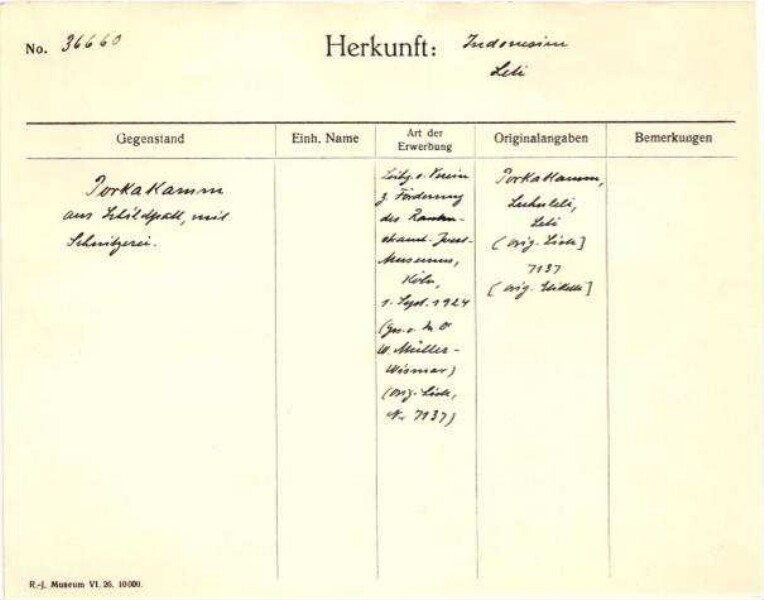 No. 36660
Herkunft: Indonesien
Leti
Gegenstand
Einh. Name
Art der
Erwerbung
Originalangaben
Bemerkungen
Porkakamm
aus Schildpatt, mit
Schnitzerei.
Leihg. v. Verein
z. Förderung
des Rauten-
strauch-Joest-
Museums,
Köln,
1. Sept. 1924
(ges. v.
W. Müller-
Wismar)
(orig. Liste,
No 7137)
Porkakamm,
Luhuleli,
Leti
(orig. Liste]
7137
(orig. Etikette]
R.-J. Museum VI. 26. 10000.